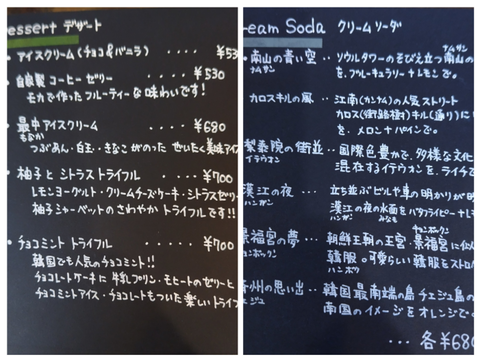 essert デザート
・アイスクリーム(チョコ&バニラ) ・・・・ ¥53
・自家製コーヒーゼリー ・・・・ ¥530
モカで作ったフルーティーな味わいです!
・最中アイスクリーム ・・・・ ¥680
もなか
つぶあん・白玉・きなこがのった ぜいたく美味アイス
・柚子とシトラストライフル ・・・・ ¥700
レモンヨーグルト・クリームチーズケーキ・シトラスゼリー
柚子シャーベットのさわやかトライフルです!!
・チョコミントトライフル ・・・・・ ¥700
韓国でも人気のチョコミント!!
チョコレートケーキに牛乳プリン・モヒートのゼリーと
チョコミントアイス・チョコレートもついた楽しいトライフ
eam Soda クリームソーダ
ナムサン
・南山の青い空 ・・ ソウルタワーのそびえ立つ南山の
ナムサン
を、ブルーキュラソーとレモンで。
カロスキルの風 ・・ 江南(カンナム)の人気ストリート
カロス(街路樹)キル(通り)に
を、メロンとパインで。
梨泰院の街並 ・・ 国際色豊かで、多様な文化
イテウォン
混在するイテウォンを、ライチで
・漢江の夜 ・・・ 立ち並ぶビルや車の明かりが
ハンガン
漢江の夜の水面をバタフライピーとレモ
ハンガン みなも
景福宮の夢 ・・ 朝鮮王朝の王宮・景福宮に
韓服の可愛らしい韓服をストロベ
ハンボク
済州の思い出 ・・ 韓国最南端の島チェジュ島の
チェジュ
南国のイメージをオレンジで。
・・・ 各¥680